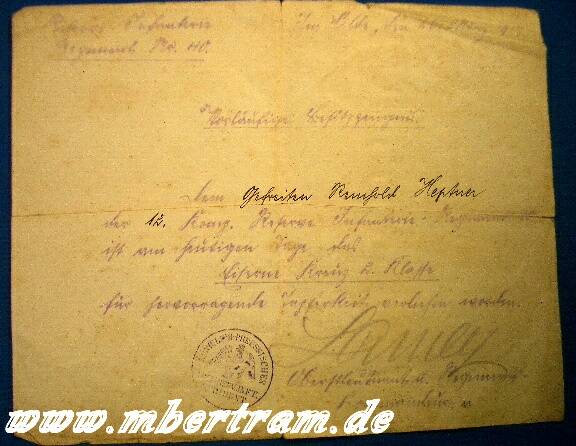 Reserve Infanterie Im Felde, den
Regiment No. 40.
Vorläufiges Besitzzeugnis.
Dem Gefreiten Reinhold Heptner
der 12. Komp. Reserve Infanterie-Regiments
ist am heutigen Tage das
Eiserne Kreuz 2. Klasse
für hervorragende Tapferkeit verliehen worden.
Oberstleutnant u. Regiments
www.mbertram.de